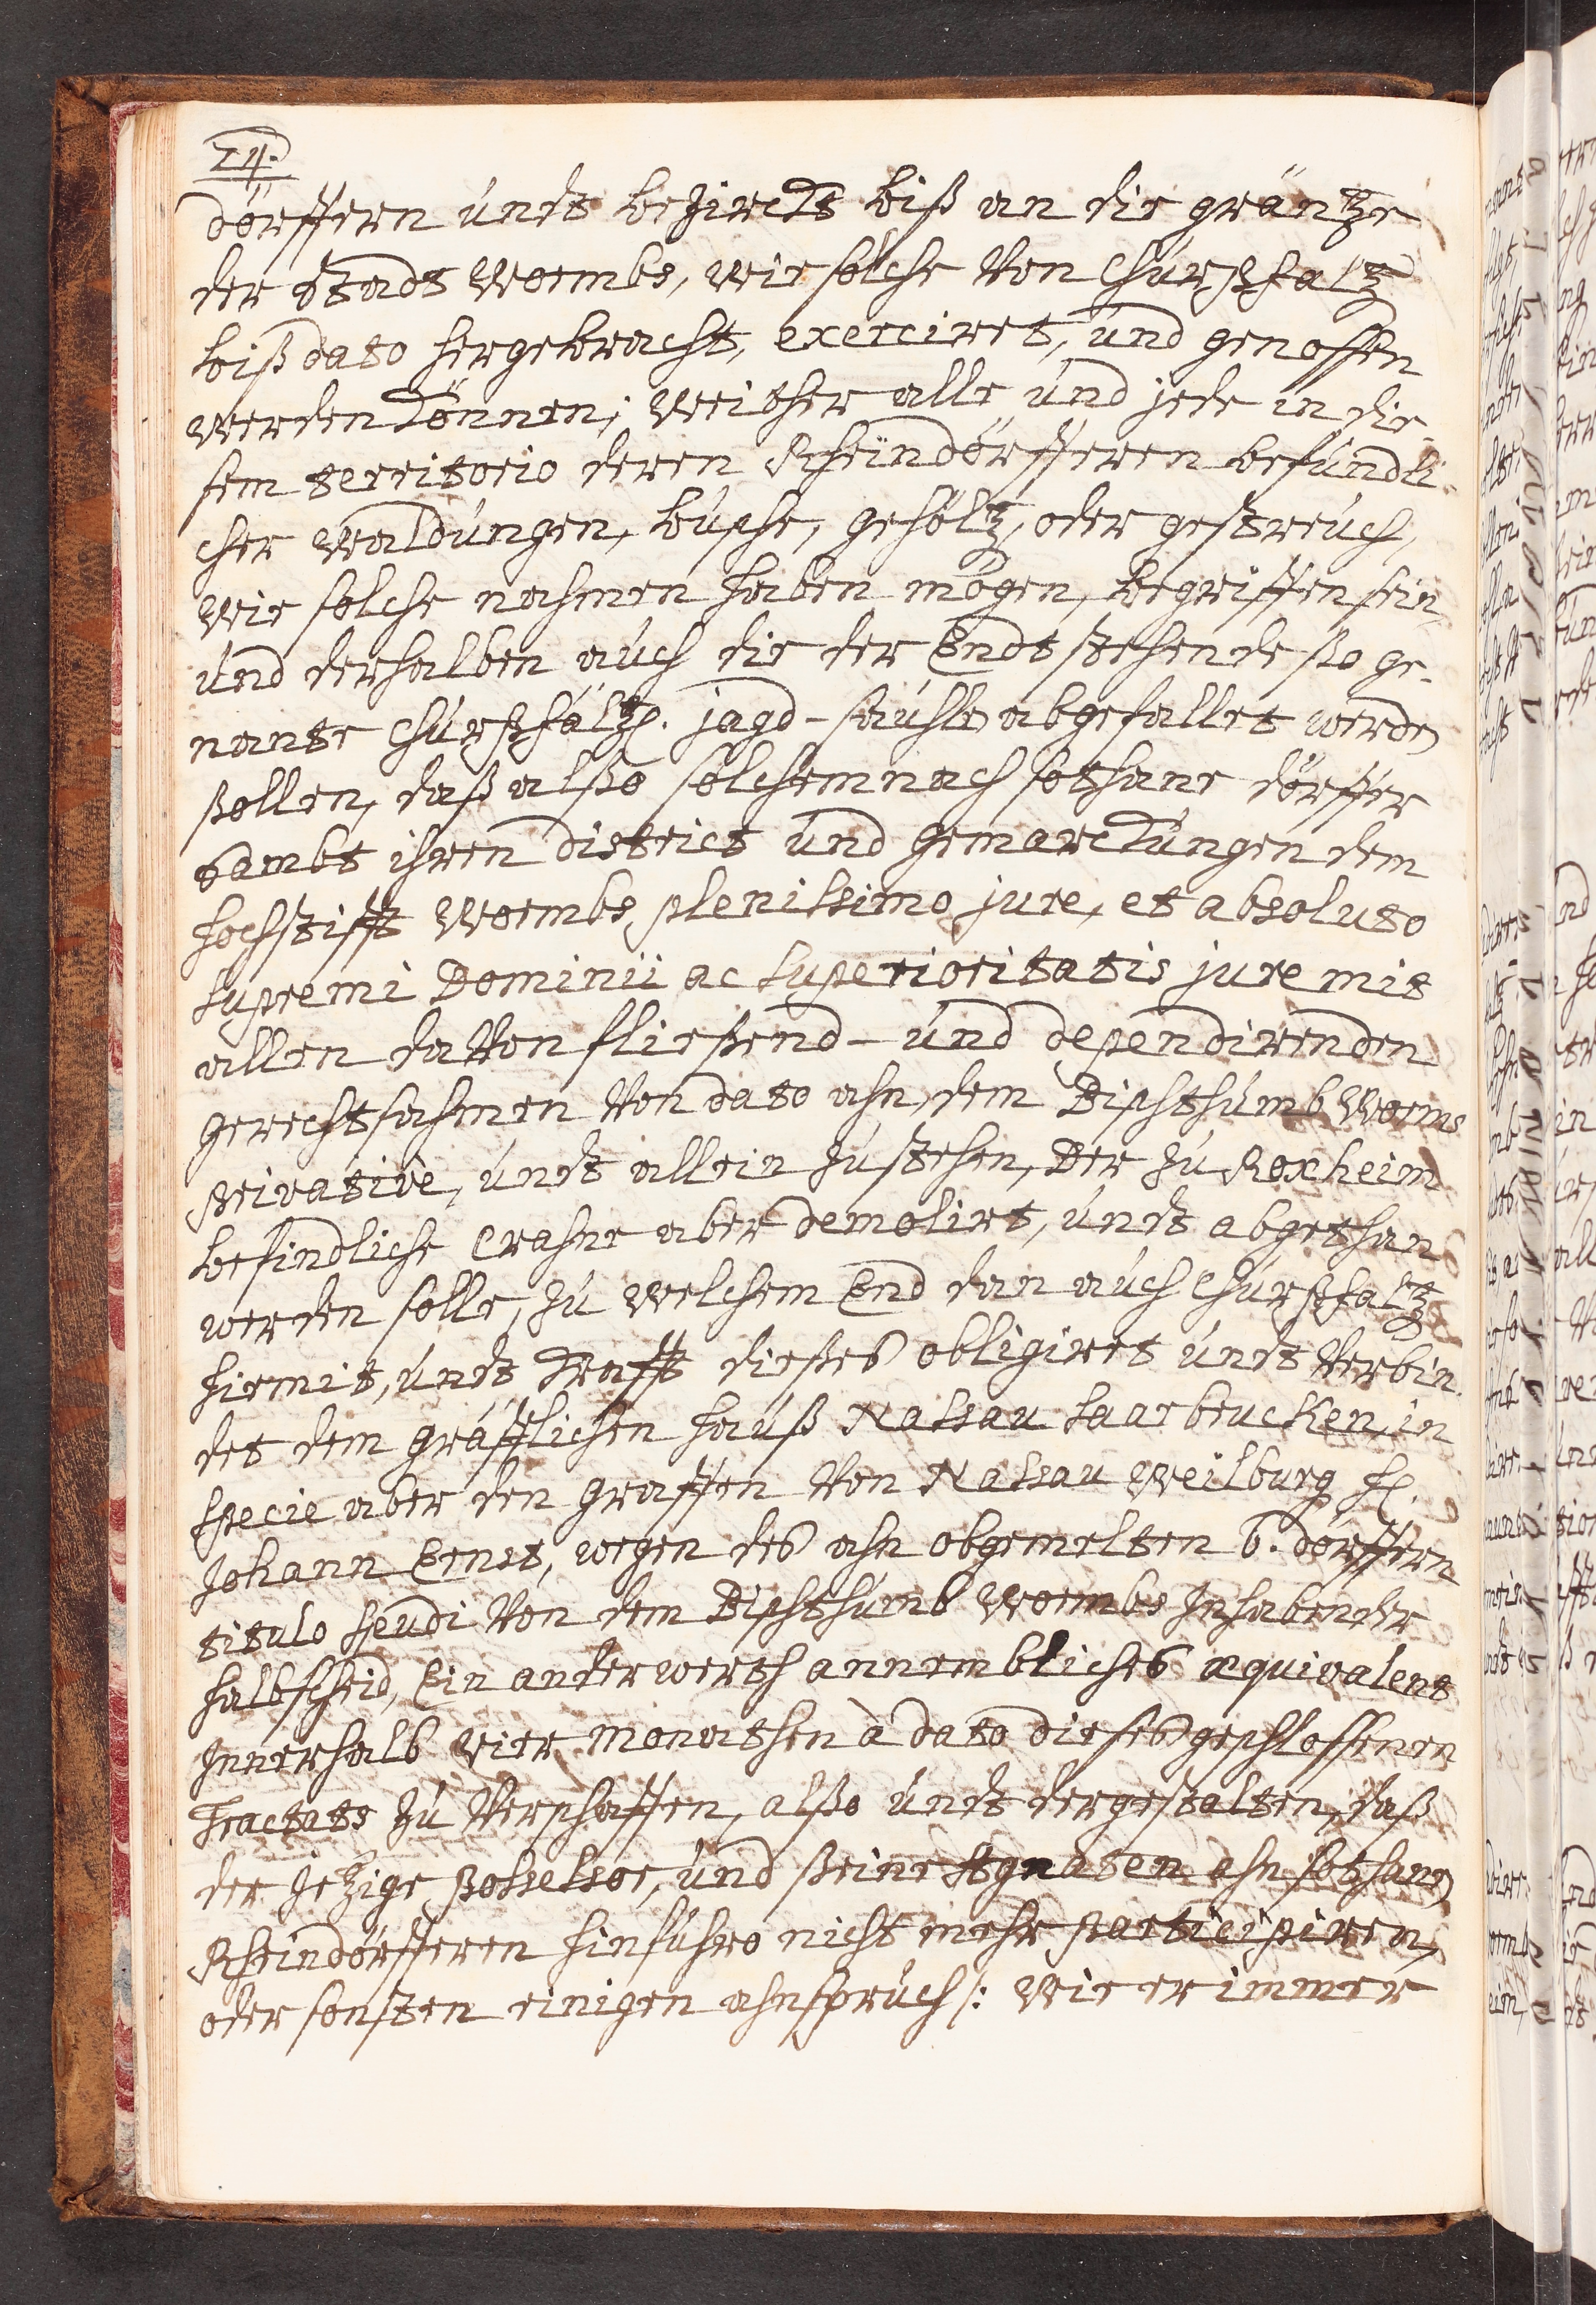 24.
dörffern undt bezircks biß an die gräntze
der Stadt Wormbs, wie solche von ChurPfaltz
biß dato hergebracht, exerciret, und genossen
werden können; Weither alle und jede in die
sem territorio deren Rheindörfferen befundli
cher Waldungen, büsche, gehöltz, oder gesträuch,
wie solche nahmen haben mögen, begriffen sein,
und derhalben auch die der Endt stehende ßo ge-
nante Churpfältz. jagd-säuhle abgefallet werden
ßollen, daß alßo solchemnach sothane dörffer
sambt ihren district und gemarckungen dem
hochstifft Wormbs plenissimo jure, et absoluto
supremi Dominii ac superioritatis jure mit
allen davon fließend- und dependirenden
gerechtsahmen von dato ahn, dem Bischthumb Worms
privative, undt allein zustehen, Der zu Roxheim
befindliche Crahne aber demolirt, undt abgethan
werden solle, zu welchem End dan auch ChurPfaltz
hiermit, undt krafft dießes obligiret undt verbin
det dem gräfflichen hauß Nassau Saarbrucken, in
specie aber den graffen von Nassau Weilburg H.
Johann Ernst, wegen des ahn obgemelten 6. dörffern
titulo feudi von dem Bischthumb Wormbs Inhabender
halbscheid, Ein anderwerth annembliches æquivalent
Innerhalb vier Monathen à dato dieses geschlossenen
Tractats zu verschaffen, alßo undt dergestalten, daß
der jetzige Possessor, und ßeine Agnaten ahn sothanen
Rheindörfferen hinführo nicht mehr participiren,
oder sonsten einigen ahnspruch /: wie er immer